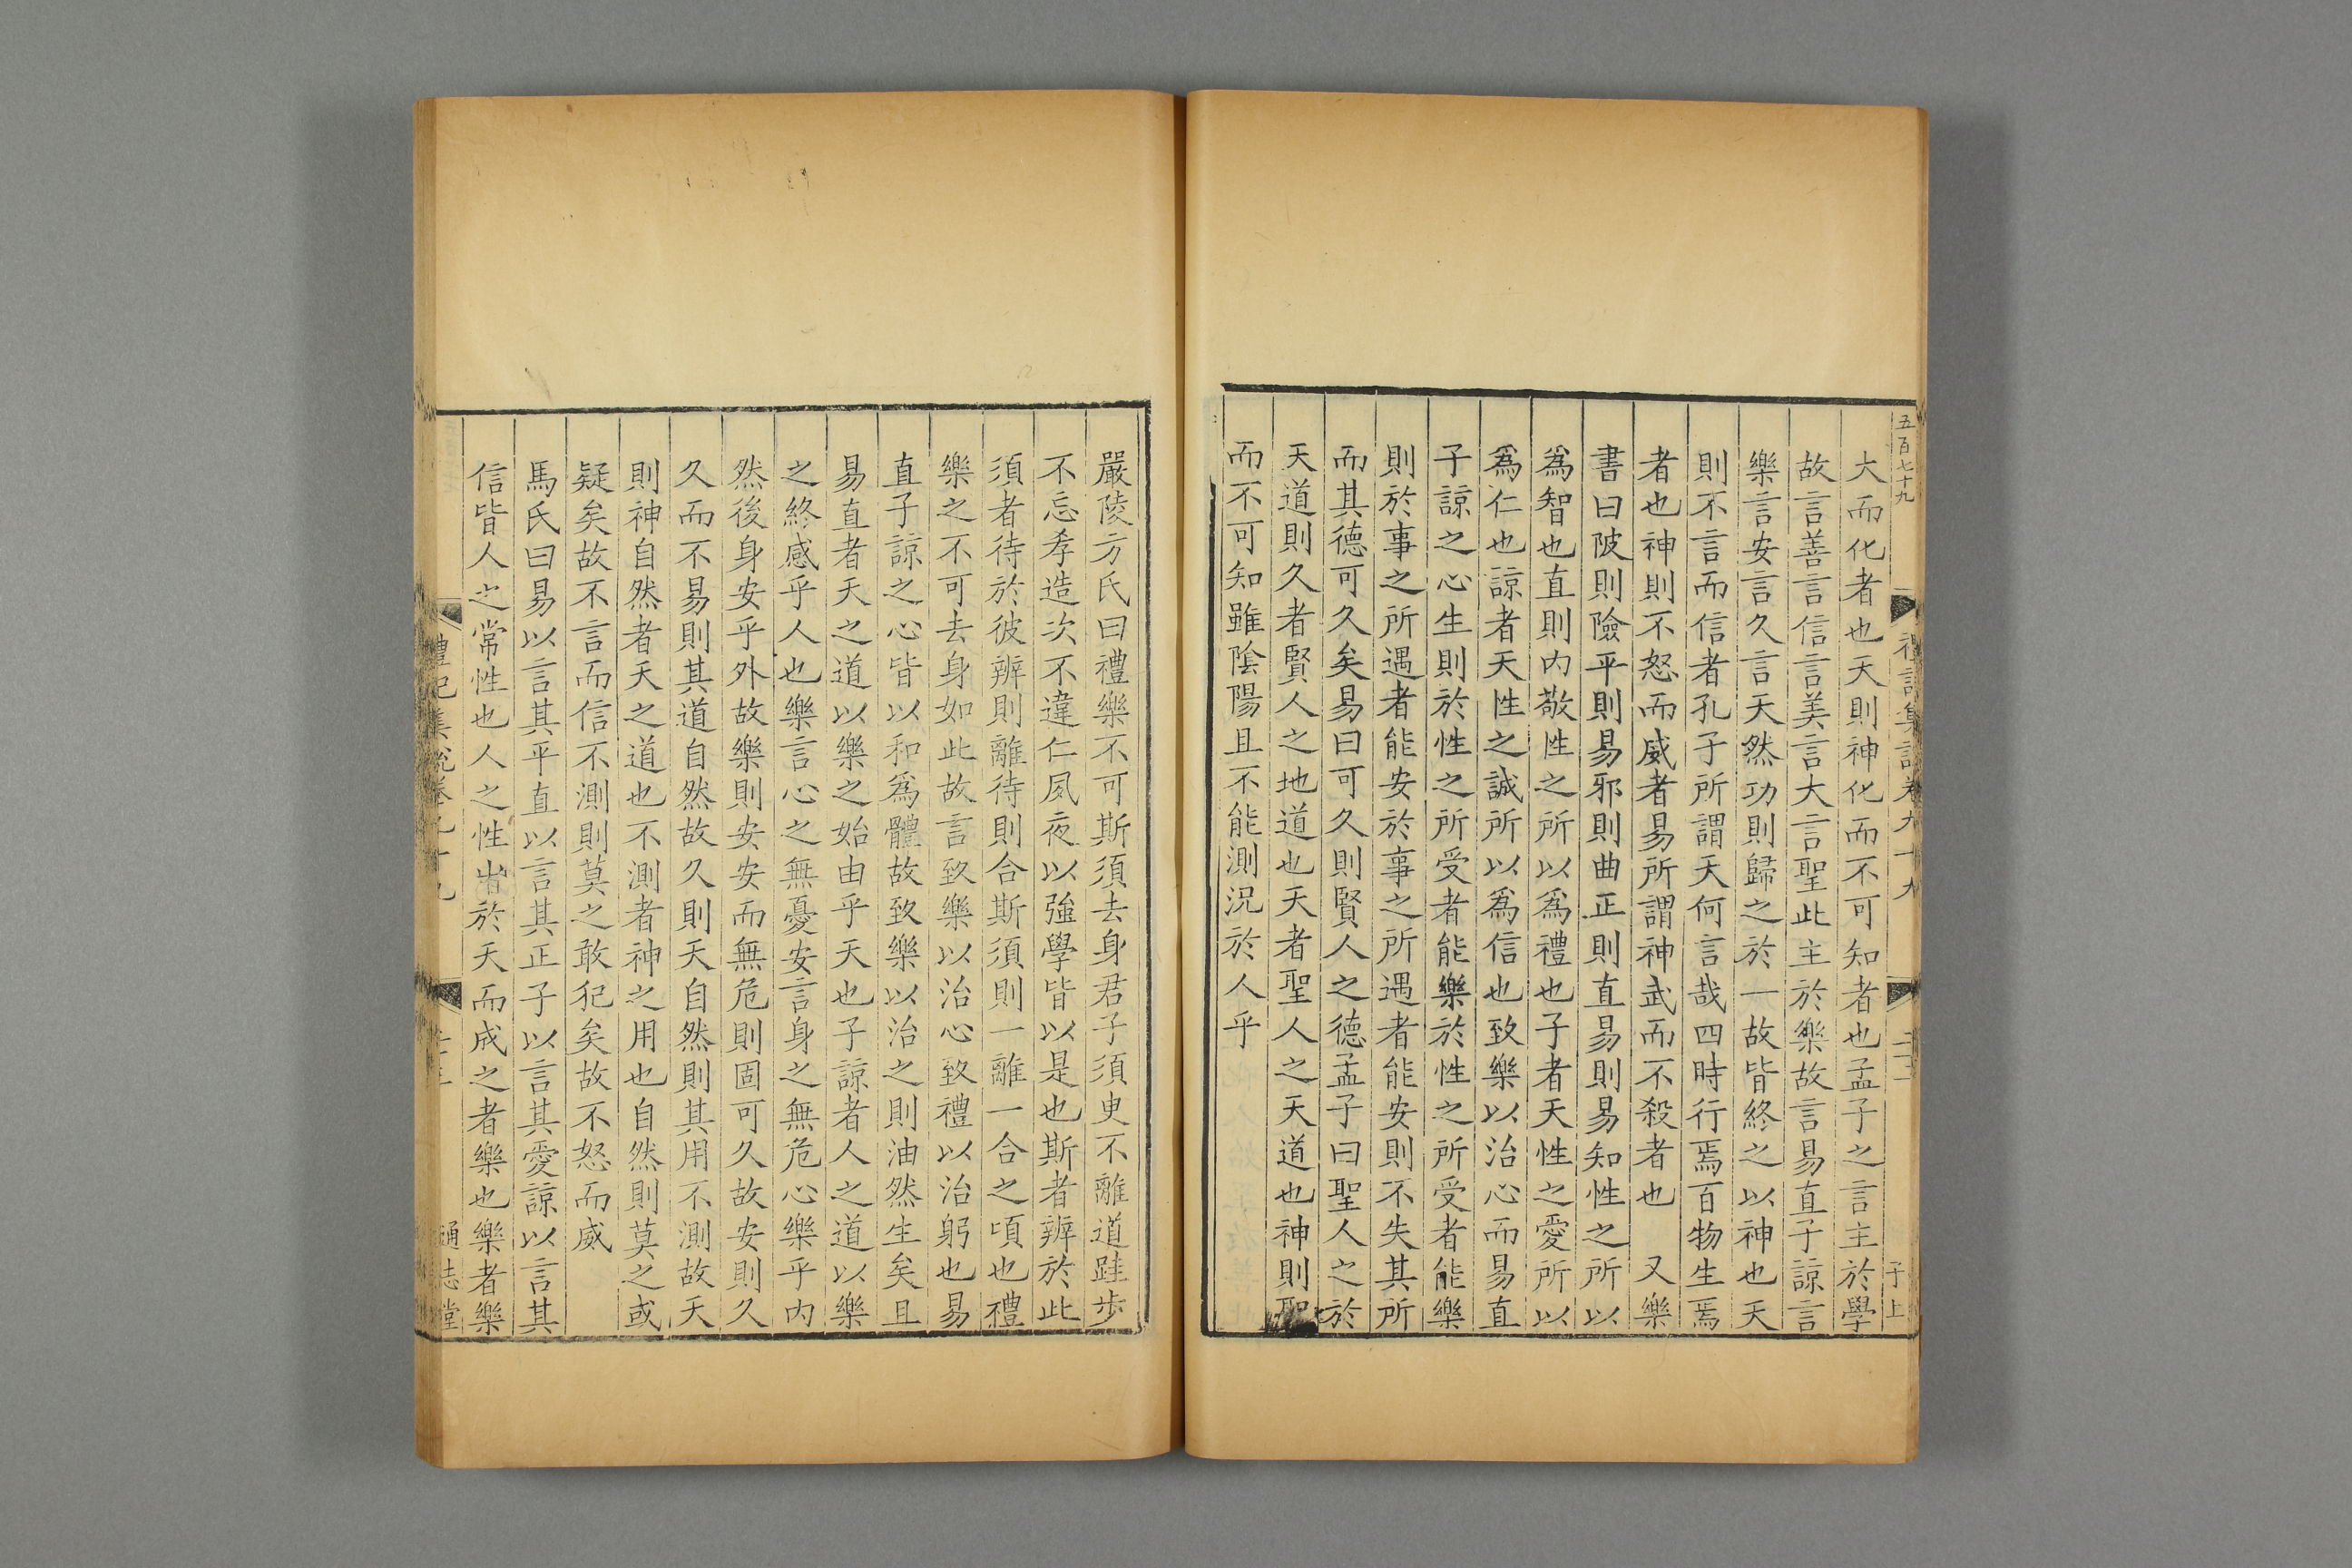 五百七十九
子上
大而化者也天則神化而不可知者也孟子之言主於學
故言善言信言美言大言聖此主於樂故言易直子諒言
樂言安言久言天然功則歸之於一故皆終之以神也天
則不言而信者孔子所謂天何言哉四時行焉百物生焉
者也神則不怒而威者易所謂神武而不殺者也 又樂
書曰陂則險平則易邪則曲正則直易則易知性之所以
爲智也直則内敬性之所以爲禮也子者天性之愛所以
爲仁也諒者天性之誠所以爲信也致樂以治心而易直
子諒之心生則於性之所受者能樂於性之所受者能樂
則於事之所遇者能安於事之所遇者能安則不失其所
而其德可久矣易曰可久則賢人之德孟子曰聖人之於
天道則久者賢人之地道也天者聖人之天道也神則聖
而不可知雖陰陽且不能測況於人乎
嚴陵方氏曰禮樂不可斯須去身君子須臾不離道跬步
不忘孝造次不違仁夙夜以強學皆以是也斯者辨於此
須者待於彼辨則離待則合斯須則一離一合之頃也禮
樂之不可去身如此故言致樂以治心致禮以治躬也易
直子諒之心皆以和爲體故致樂以治之則油然生矣且
易直者天之道以樂之始由乎天也子諒者人之道以樂
之終感乎人也樂言心之無憂安言身之無危心樂乎内
然後身安乎外故樂則安安而無危則固可久故安則久
久而不易則其道自然故久則天自然則其用不測故天
則神自然者天之道也不測者神之用也自然則莫之或
疑矣故不言而信不測則莫之敢犯矣故不怒而威
馬氏曰易以言其平直以言其正子以言其愛諒以言其
信皆人之常性也人之性出於天而成之者樂也樂者樂
禮記集說卷九十九
通志堂